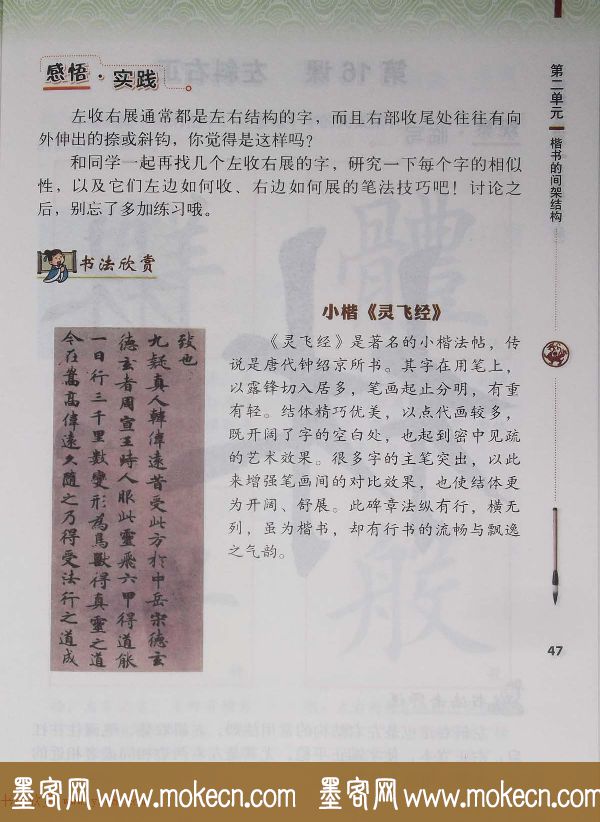 感悟·实践
左收右展通常都是左右结构的字，而且右部收尾处往往有向
外伸出的捺或斜钩，你觉得是这样吗？
和同学一起再找几个左收右展的字，研究一下每个字的相似
性，以及它们左边如何收、右边如何展的笔法技巧吧！讨论之
后，别忘了多加练习哦。
书法欣赏
小楷《灵飞经》
《灵飞经》是著名的小楷法帖，传
说是唐代钟绍京所书。其字在用笔上，
以露锋切入居多，笔画起止分明，有重
有轻。结体精巧优美，以点代画较多，
既开阔了字的空白处，也起到密中见疏
的艺术效果。很多字的主笔突出，以此
来增强笔画间的对比效果，也使结体更
为开阔、舒展。此碑章法纵有行，横无
列，虽为楷书，却有行书的流畅与飘逸
之气韵。
致也
九疑真人韓偉遠昔受此方於中岳宋德玄
德玄者周宣王時人服此靈飛六甲得道能
一日行三千里數變形為鳥獸得真靈之道
今在嵩高偉遠久隨之乃得受法行之道成
第二单元
楷书的间架结构
47
第16课 左斜右正
體
般
墨客网 www.mokecn.com 墨客网 www.mokecn.com